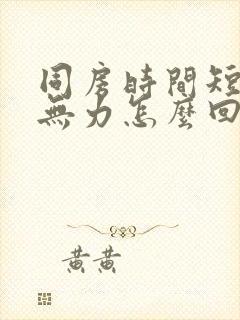 同房時間短
無力怎麼回
黃黃